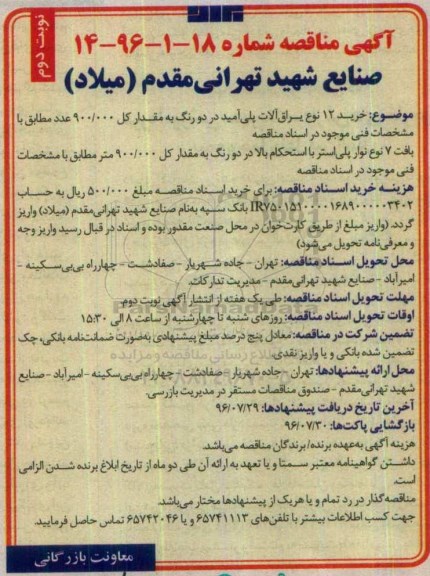 نوبت دوم
آگهی مناقصه شماره ۱۸-۱-۹۶-۱۴
صنایع شهید تهرانی‌مقدم (میلاد)
موضوع: خرید ۱۲ نوع یراق‌آلات پلی‌آمید در دو رنگ به مقدار کل ۹۰۰/۰۰۰ عدد مطابق با
مشخصات فنی موجود در اسناد مناقصه
بافت ۷ نوع نوار پلی‌استر با استحکام بالا در دو رنگ به مقدار کل ۹۰۰/۰۰۰ متر مطابق با مشخصات
فنی موجود در اسناد مناقصه
هزینه خرید اسناد مناقصه: برای خرید اسناد مناقصه مبلغ ۵۰۰/۰۰۰ ریال به حساب
بانک سپه به‌نام صنایع شهید تهرانی‌مقدم (میلاد) واریز
گردد. (واریز مبلغ از طریق کارت‌خوان در محل صنعت مقدور بوده و اسناد در قبال رسید واریز وجه
و معرفی‌نامه تحویل می‌شود)
محل تحویل اسناد مناقصه: تهران - جاده شهریار - صفادشت - چهارراه بی‌بی‌سکینه -
امیرآباد - صنایع شهید تهرانی‌مقدم - مدیریت تدارکات.
مهلت تحویل اسناد مناقصه: طی یک هفته از انتشار آگهی نوبت دوم.
اوقات تحویل اسناد مناقصه: روزهای شنبه تا چهارشنبه از ساعت ۸ الی ۱۵:۳۰
تضمین شرکت در مناقصه: معادل پنج درصد مبلغ پیشنهادی به‌صورت ضمانت‌نامه بانکی، چک
تضمین شده بانکی و یا واریز نقدی.
محل ارائه پیشنهادها: تهران - جاده شهریار - صفادشت - چهارراه بی‌بی‌سکینه - امیرآباد - صنایع
شهید تهرانی مقدم - صندوق مناقصات مستقر در مدیریت بازرسی.
آخرین تاریخ دریافت پیشنهادها: ۹۶/۰۷/۲۹
بازگشایی پاکت‌ها: ۹۶/۰۷/۳۰
هزینه آگهی به‌عهده برنده/برندگان مناقصه می‌باشد.
داشتن گواهینامه معتبر سمتا و یا تعهد به ارائه آن طی دو ماه از تاریخ ابلاغ برنده شدن الزامی
است.
مناقصه‌گذار در رد تمام و یا هریک از پیشنهادها مختار می‌باشد.
جهت کسب اطلاعات بیشتر با تلفن‌های ۶۵۷۴۱۱۱۳ و یا ۶۵۷۴۲۰۴۶ تماس حاصل فرمایید.
معاونت بازرگانی